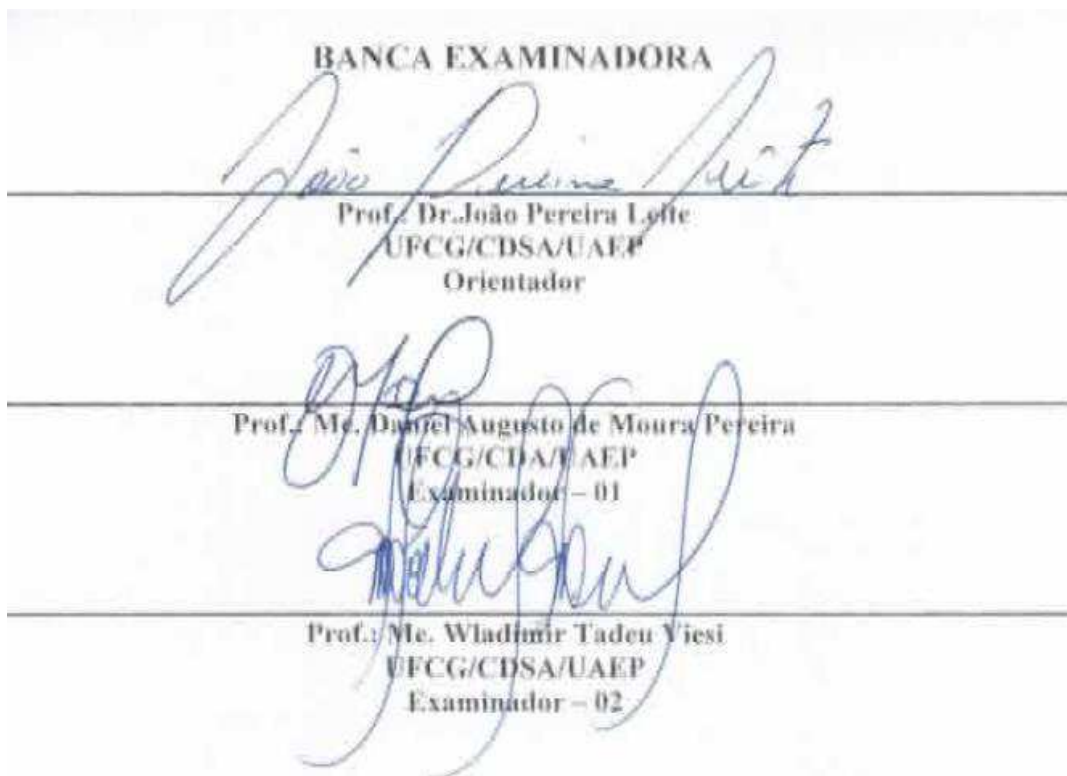 BANCA EXAMINADORA
João Pereira Leite
Prof.: Dr.João Pereira Leite
UFCG/CDSA/UAEP
Orientador
Prof.: Me. Daniel Augusto de Moura Pereira
UFCG/CDA/UAEP
Examinador – 01
Prof.: Me. Wladimir Tadeu Viesi
UFCG/CDSA/UAEP
Examinador – 02